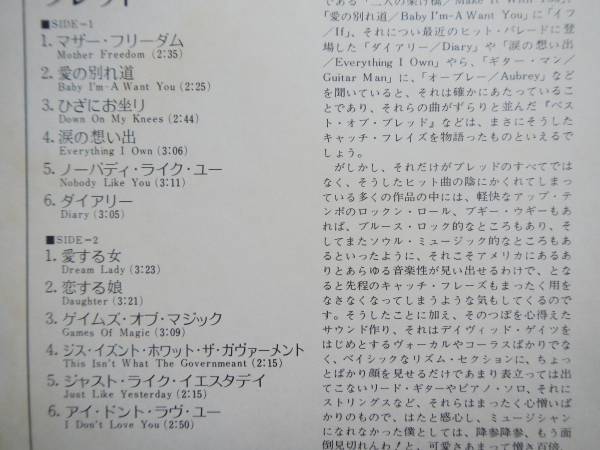 ブレッド
■SIDE-1
1. マザー・フリーダム
Mother Freedom (2:35)
2. 愛の別れ道
Baby I'm-A Want You (2:25)
3. ひざにお坐り
Down On My Knees (2:44)
4. 涙の想い出
Everything I Own (3:06)
5. ノーバディ・ライク・ユー
Nobody Like You (3:11)
6. ダイアリー
Diary (3:05)
■SIDE-2
1. 愛する女
Dream Lady (3:23)
2. 恋する娘
Daughter (3:21)
3. ゲイムズ・オブ・マジック
Games Of Magic (3:09)
4. ジス・イズント・ホワット・ザ・ガヴァーメント
This Isn't What The Governmeant (2:15)
5. ジャスト・ライク・イエスタデイ
Just Like Yesterday (2:15)
6. アイ・ドント・ラヴ・ユー
I Don't Love You (2:50)
である「二人の架け橋/Make It With You」
「愛の別れ道/Baby I'm-A Want You」に「イフ
/If」、それについ最近のヒット・パレードに登
場した「ダイアリー/Diary」や「涙の想い出
/Everything I Own」やら、「ギター・マン/
Guitar Man」に、「オーブレー/Aubrey」など
を聞いていると、それは確かにあたっているこ
とであり、それらの曲がずらりと並んだ『ベス
ト・オブ・ブレッド』などは、まさにそうした
キャッチ・フレイズを物語ったものといえるで
しょう。
がしかし、それだけがブレッドのすべてでは
なく、そうしたヒット曲の陰にかくれてしまっ
ている多くの作品の中には、軽快なアップ・テ
ンポのロックン・ロール、ブギー・ウギーもあ
れば、ブルース・ロック的なところもあり、そ
してまたソウル・ミュージック的なところもあ
るといったように、それこそアメリカにあるあ
りとあらゆる音楽性が見い出せるわけで、とな
ると先程のキャッチ・フレーズもまったく用を
なさなくなってしまうような気もしてくるので
す。そうしたことに加え、そのつぼを心得えた
サウンド作り、それはデイヴィッド・ゲイツを
はじめとするヴォーカルやコーラスばかりでな
く、ベイシックなリズム・セクションに、ちょっ
とばかり顔を見せるだけであまり表立っては出
てこないリード・ギターやピアノ・ソロ、それに
ストリングスなど、それらはまったく心憎いば
かりのもので、はたと感心し、ミュージシャン
になれなかった僕としては、降参降参、もう面
倒見切れんわ!と、可愛さあまって憎さ百倍、